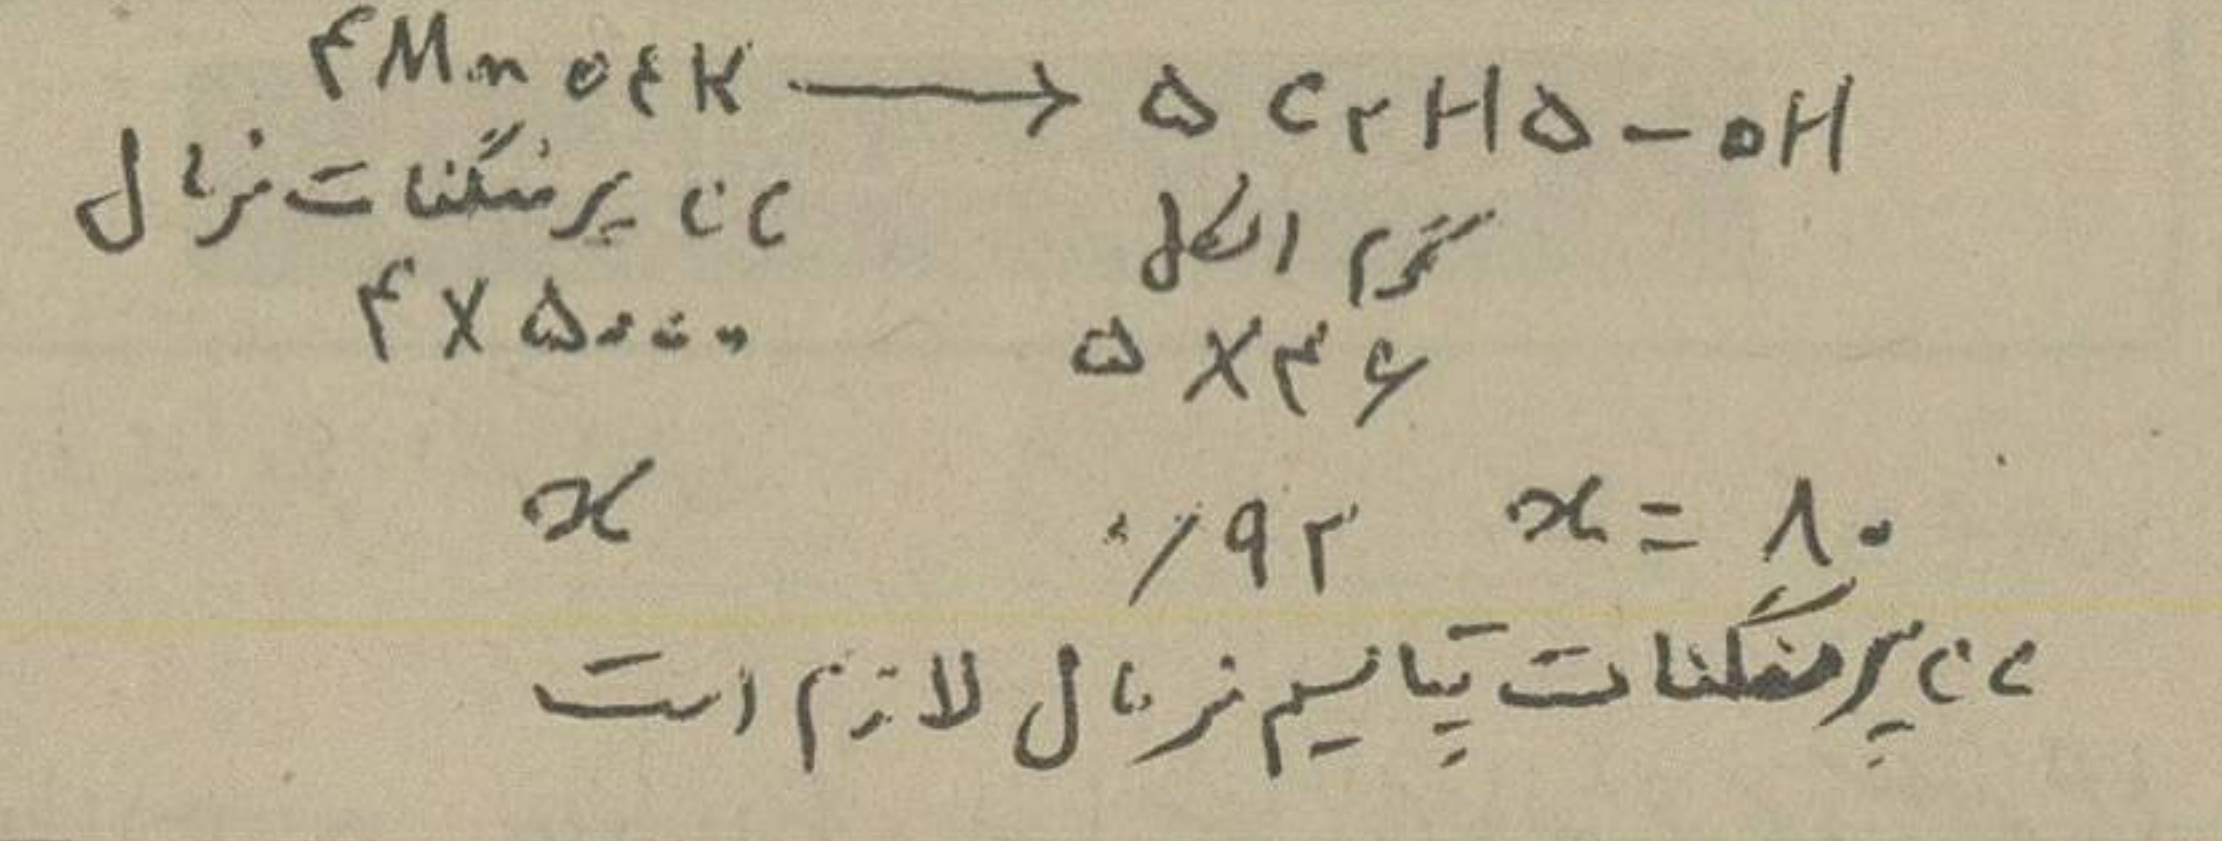 ۴MnO۴K ⟶ ۵C۲H۵-OH
cc پرمنگنات نرمال گرم الکل
۴X۵۰۰۰ ۵X۴۶
x ۰/۹۲ x = ۸۰
cc پرمنگنات پتاسیم نرمال لازم است